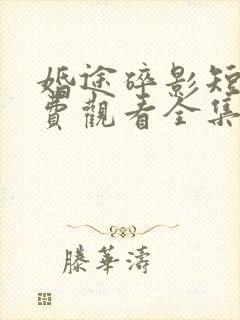 婚途碎影短
費觀看全集
滕華濤